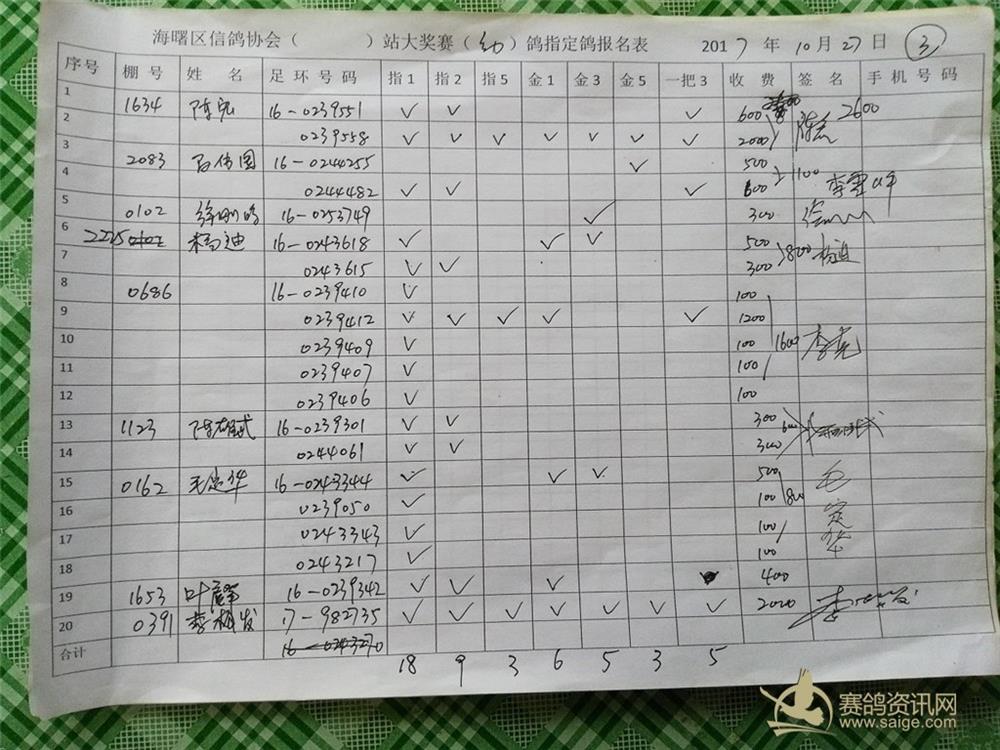 海曙区信鸽协会（ ）站大奖赛（幼）鸽指定鸽报名表 2017年10月27日 3
序号 棚号 姓名 足环号码 指1 指2 指5 金1 金3 金5 一把3 收费 签名 手机号码
1 1634 陈 16-0239551 ✓ ✓ ✓ 600 2600
2 0239558 ✓ ✓ ✓ ✓ ✓ ✓ ✓ 2000
3 2083 16-0244255 ✓ 500 1100
4 0244482 ✓ ✓ ✓ 600
5 0102 16-0253749 ✓ 300
6 2225 0102 迪 16-0243618 ✓ ✓ ✓ 500 800
7 0243615 ✓ ✓ 300
8 0686 16-0239410 ✓ 100
9 0239412 ✓ ✓ ✓ ✓ ✓ 1200
10 0239409 ✓ 100 1600
11 0239407 ✓ 100
12 0239406 ✓ 100
13 1123 陈 16-0239301 ✓ ✓ 300 600
14 0244061 ✓ ✓ 300
15 0162 毛定华 16-0243344 ✓ ✓ ✓ 500 800 毛定华
16 0239050 ✓ 100
17 0243343 ✓ 100
18 0243217 ✓ 100
19 1653 叶 16-0239342 ✓ ✓ ✓ 400
20 0391 李 发 17-982735 ✓ ✓ ✓ ✓ ✓ ✓ ✓ 2000 李
16-0243270
合计 18 9 3 6 5 3 5
赛鸽资讯网
www.saige.com